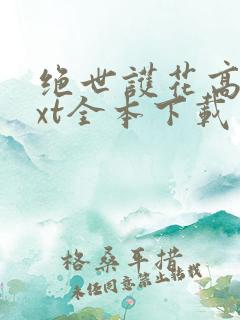 绝世護花高
xt全本下载
格桑平措
未经同意禁止转载